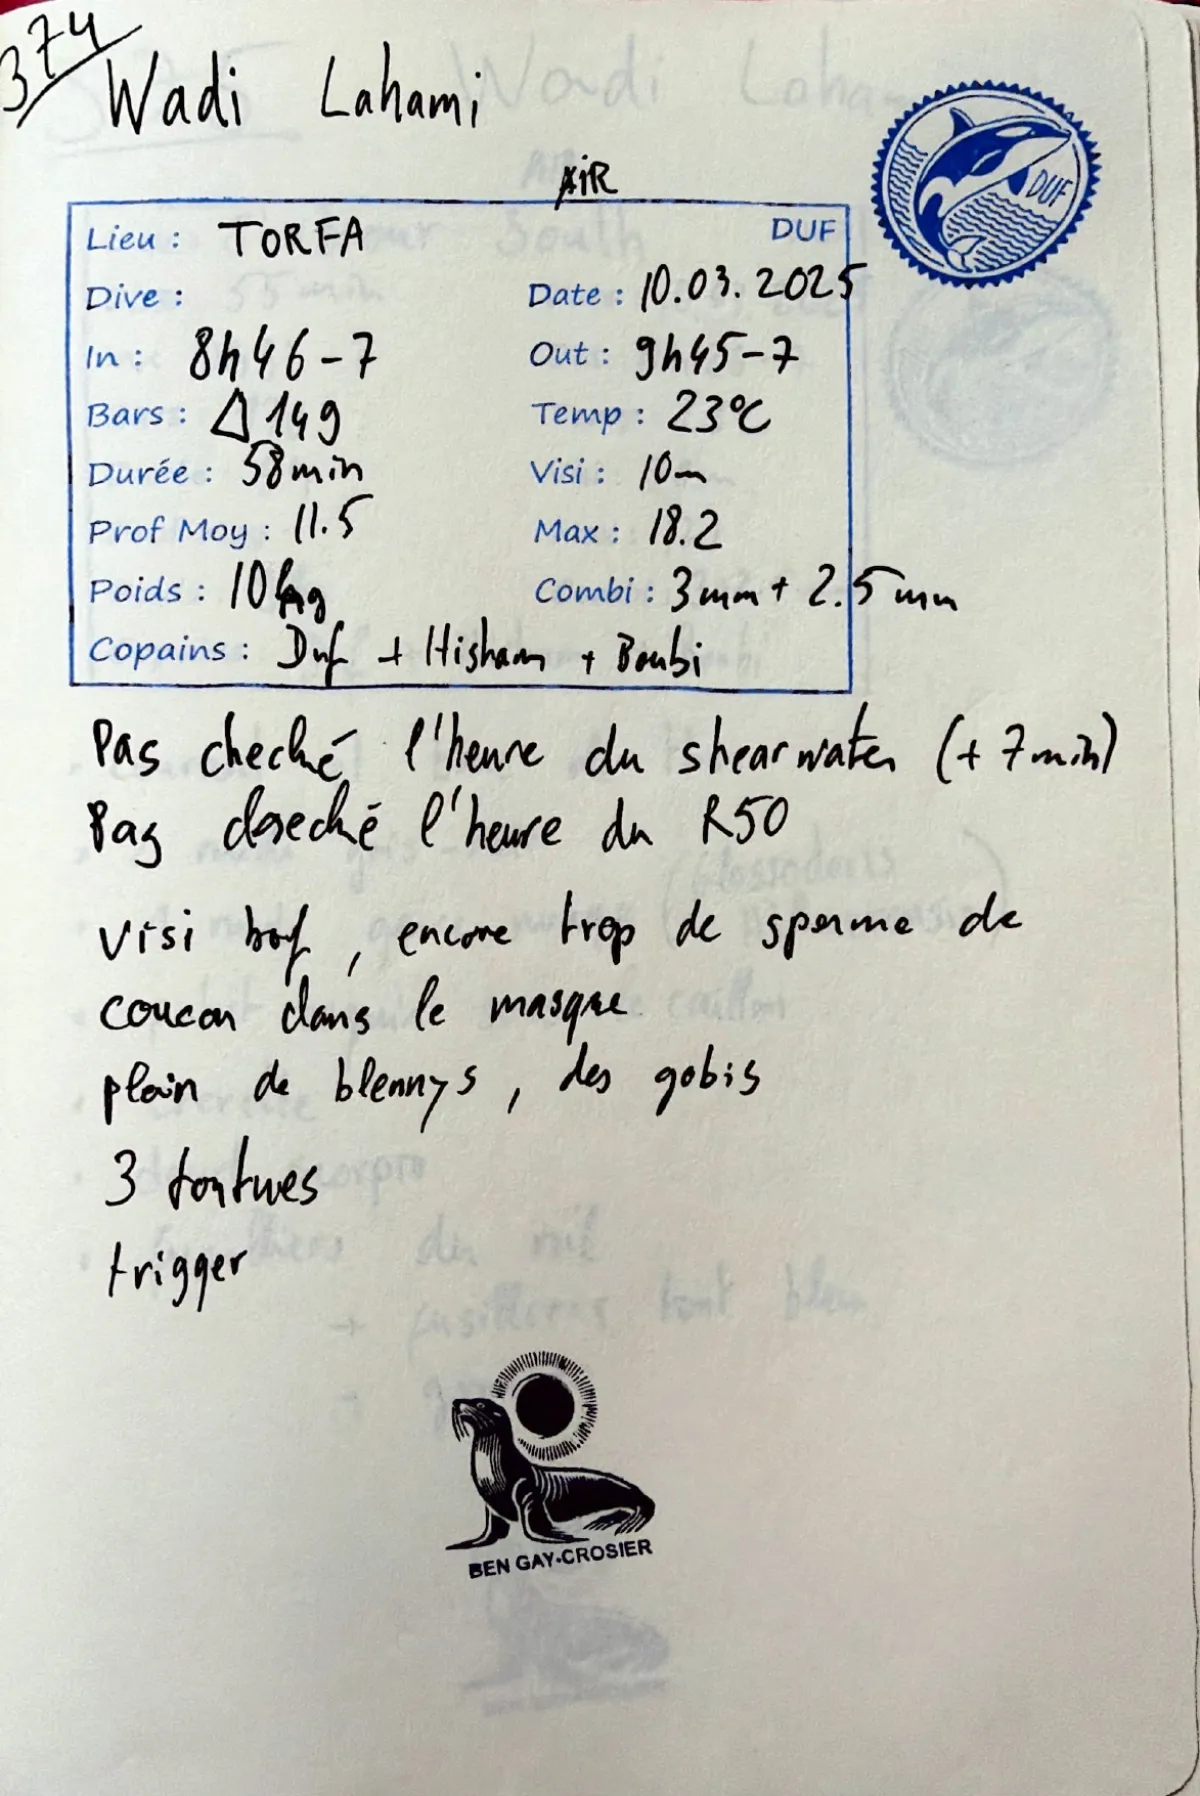 374
Wadi Lahami
AiR
Lieu : TORFA DUF
Dive : Date : 10.03.2025
In : 8h46-7 Out : 9h45-7
Bars : Δ 149 Temp : 23°C
Durée : 58min Visi : 10m
Prof Moy : 11.5 Max : 18.2
Poids : 10 kg Combi : 3mm + 2.5mm
Copains : Duf + Hisham + Boubi
DUF
Pas checké l'heure du shearwater (+7min)
Pas checké l'heure du R50
Visi bof, encore trop de sperme de
coucou dans le masque
plein de blennys, des gobis
3 tortues
trigger
BEN GAY-CROSIER